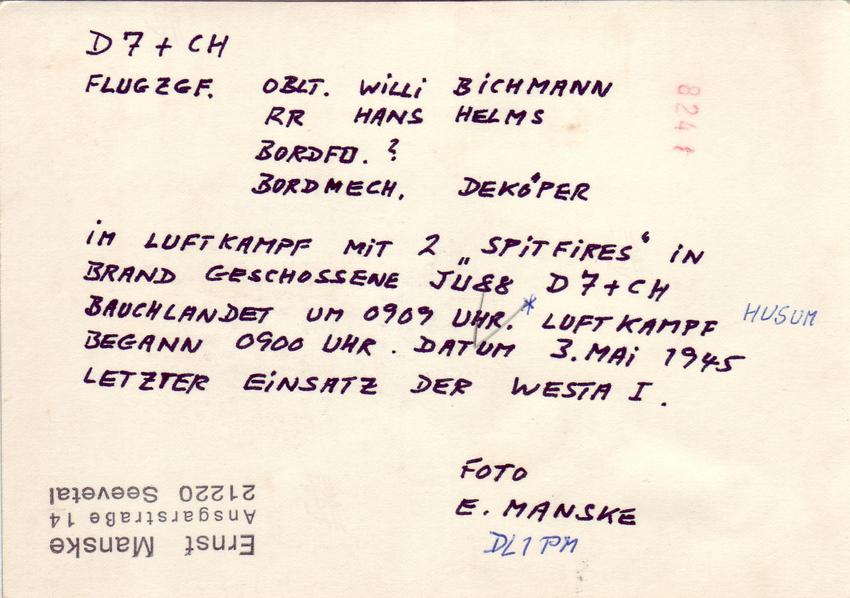 D7+CH
FLUGZGF. OBLT. WILLI BICHMANN
RR HANS HELMS
BORDFU. ?
BORDMECH. DEKÖPER
8241
IM LUFTKAMPF MIT 2 „SPITFIRES“ IN
BRAND GESCHOSSENE JU88 D7+CH
BAUCHLANDET UM 0909 UHR.* LUFTKAMPF HUSUM
BEGANN 0900 UHR. DATUM 3. MAI 1945
LETZTER EINSATZ DER WESTA I.
FOTO
E. MANSKE
DL1PM
Ernst Manske
Ansgarstraße 14
21220 Seevetal